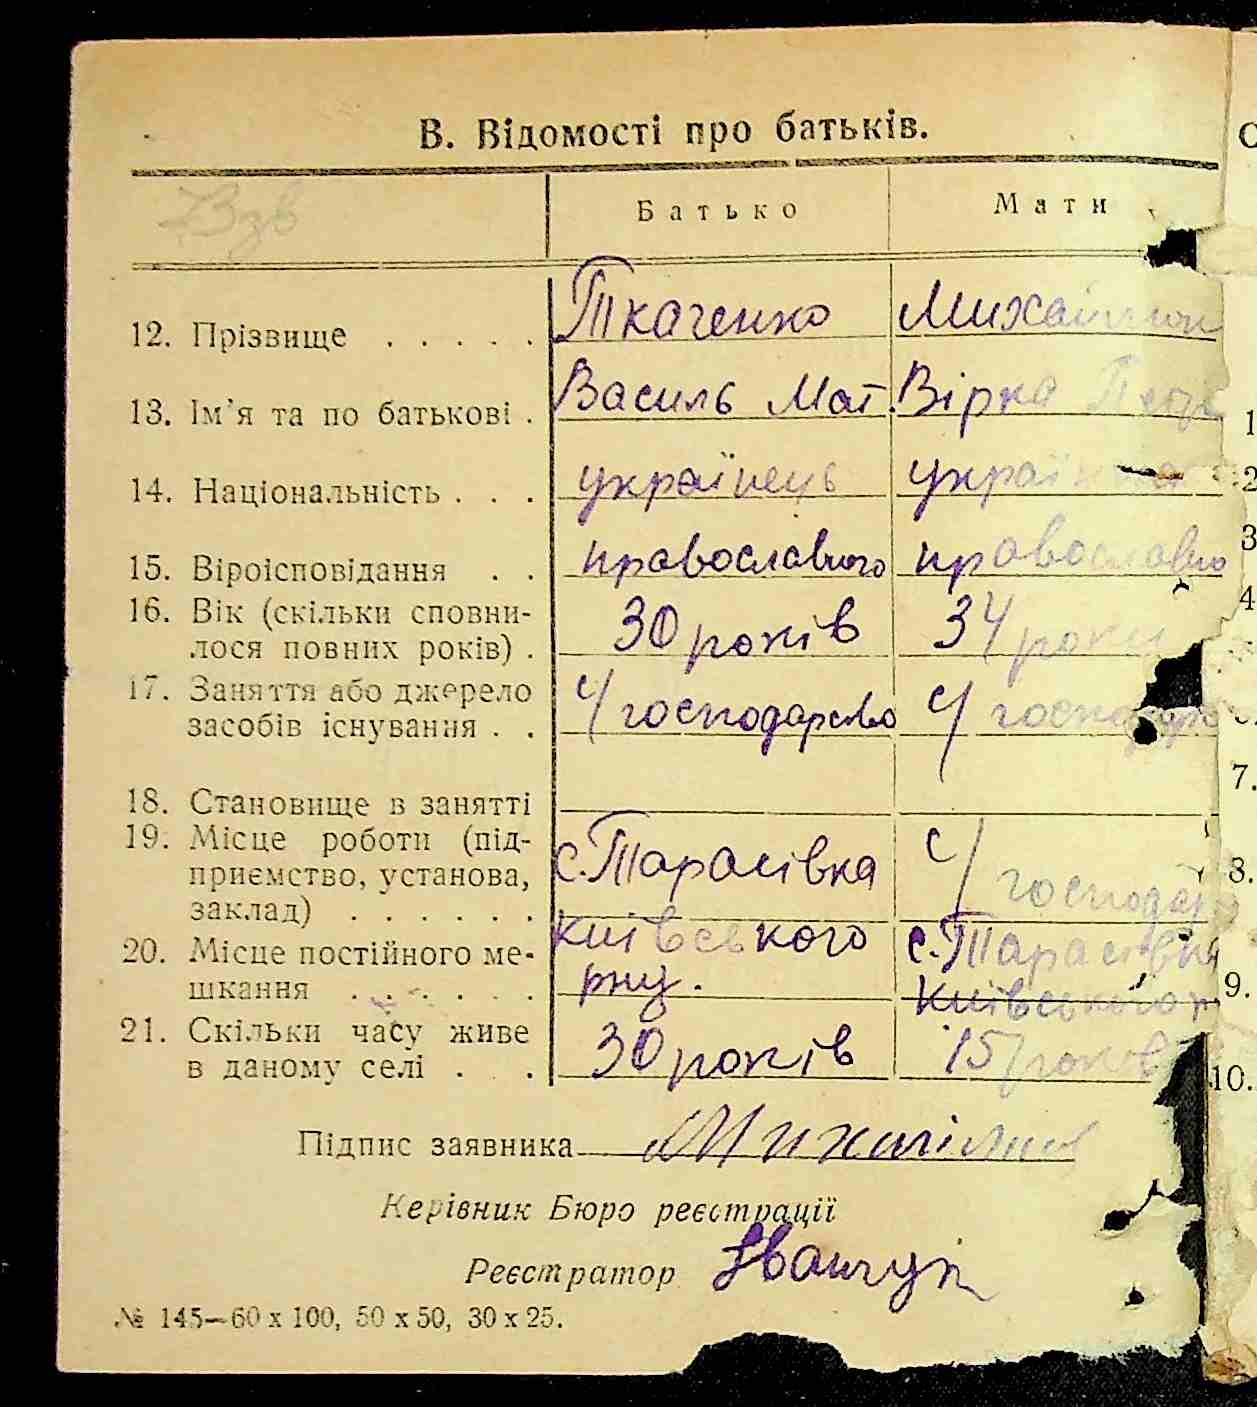 В. Відомості про батьків.
Взв
Батько Мати
12. Прізвище . . . . . Ткаченко
13. Ім'я та по батькові . Василь Мат. Вірка
14. Національність . . . українець українка
15. Віроісповідання . . православного православно
16. Вік (скільки сповни- 30 років 34 роки
лося повних років) .
17. Заняття або джерело с/господарство с/господар
засобів існування . .
18. Становище в занятті
19. Місце роботи (під- с. Тарасівка с/господар
приємство, установа,
заклад) . . . . . .
20. Місце постійного ме- київського с. Тарасівка
шкання . . . . . . рну. київського р
21. Скільки часу живе 30 років 15 років
в даному селі . . .
Підпис заявника
Керівник Бюро реєстрації
Реєстратор Іващук
№ 145—60 х 100, 50 х 50, 30 х 25.
1
2
3
4
7.
8.
9.
10.